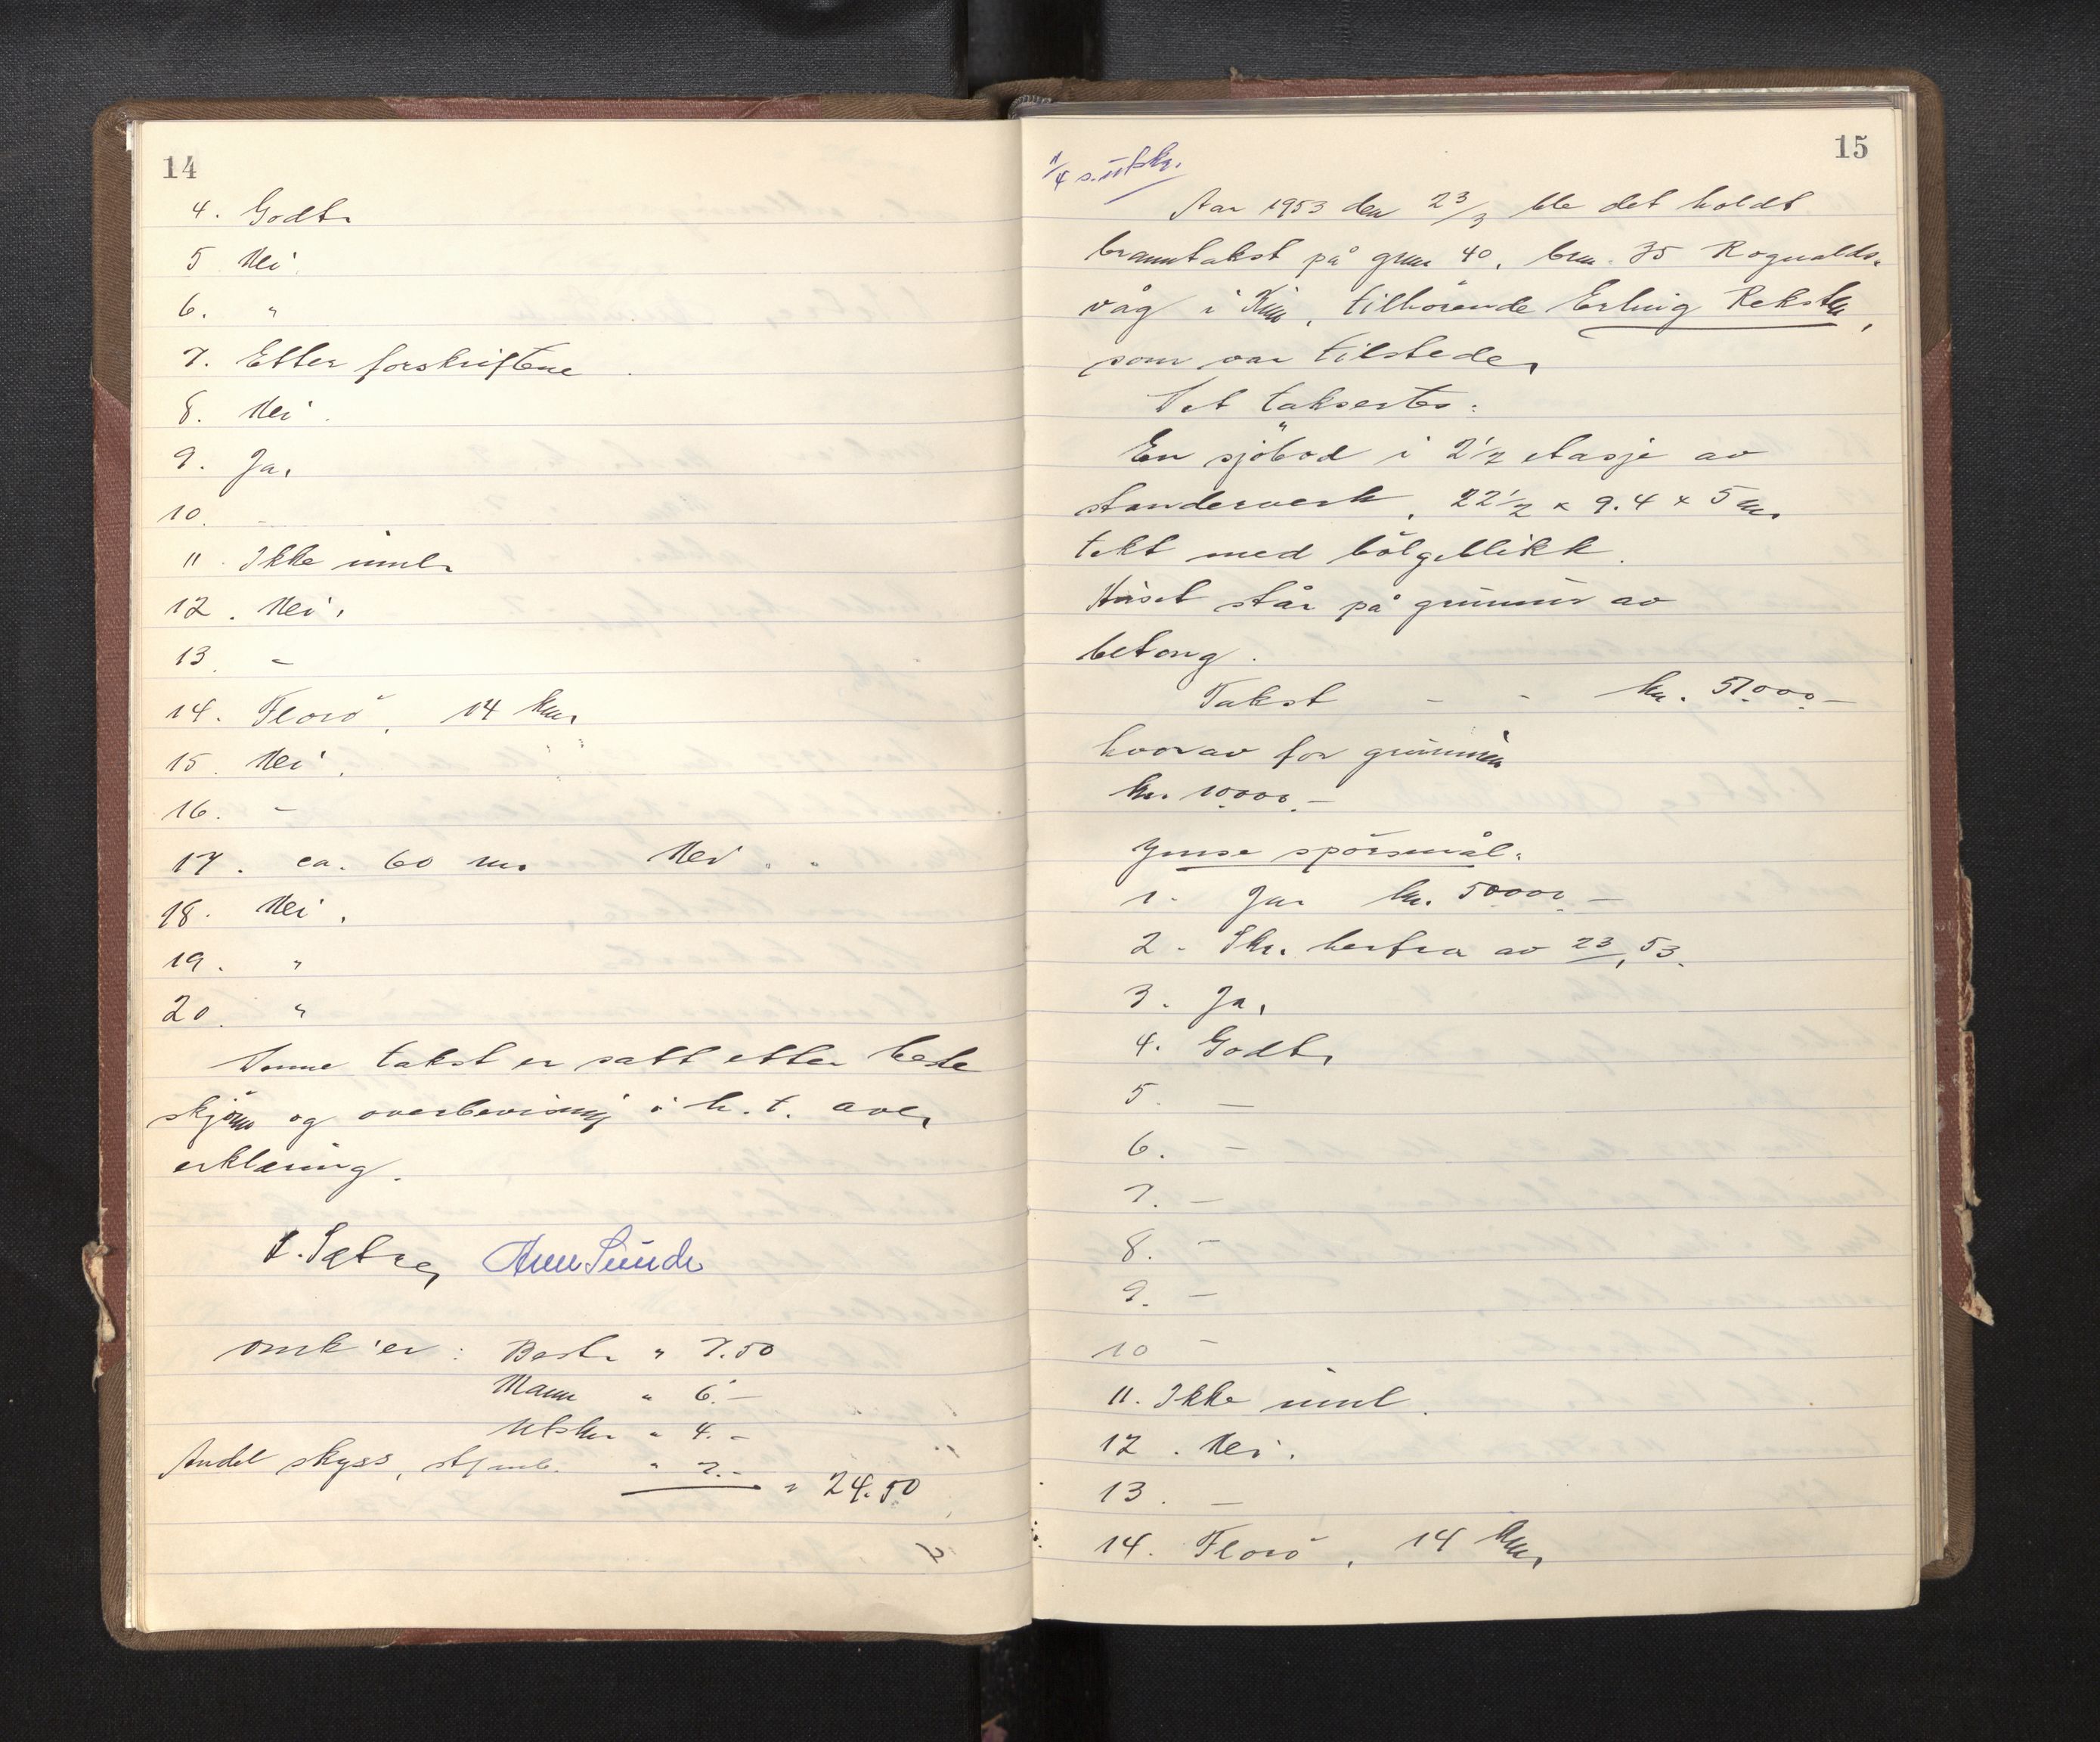 14
4. Godt.
5 Nei.
6. "
7. Etter forskriftene.
8. Nei.
9. Ja.
10. -
11. Ikke innl.
12. Nei.
13. -
14. Florö, 14 km.
15. Nei.
16. -
17. ca. 60 m. Nei.
18. Nei.
19. "
20. "
Denne takst er satt etter beste
skjönn og overbevisning i h. t. avl.
erklæring.
Sætre,
omk'er: Best. " 7.50
Mann " 6.-
Utskr " 4.-
Andel skyss, " 7.- = 24.50
15
1/4 s. utskr.
Aar 1953 den 23/3 ble det holdt
branntakst på gnr 40, bnr. 35 Rognalds-
våg i Kinn, tilhörende Erling Reksten,
som var tilstede.
Det taksertes:
En sjöbod i 2 1/2 etasje av
standerverk, 22 1/2 x 9.4 x 5 m.
tekt med bölgeblikk.
Huset står på grunnmur av
betong.
Takst - - kr. 51000.-
hvorav for grunnmuren
kr. 10000.-
Ymse spörsmål.
1. Ja. kr. 50000.-
2. Skr. herfra av 23/1 53.
3. Ja.
4. Godt.
5. -
6. -
7. -
8. -
9. -
10 -
11. Ikke innl.
12. Nei.
13. -
14. Florö, 14 km.